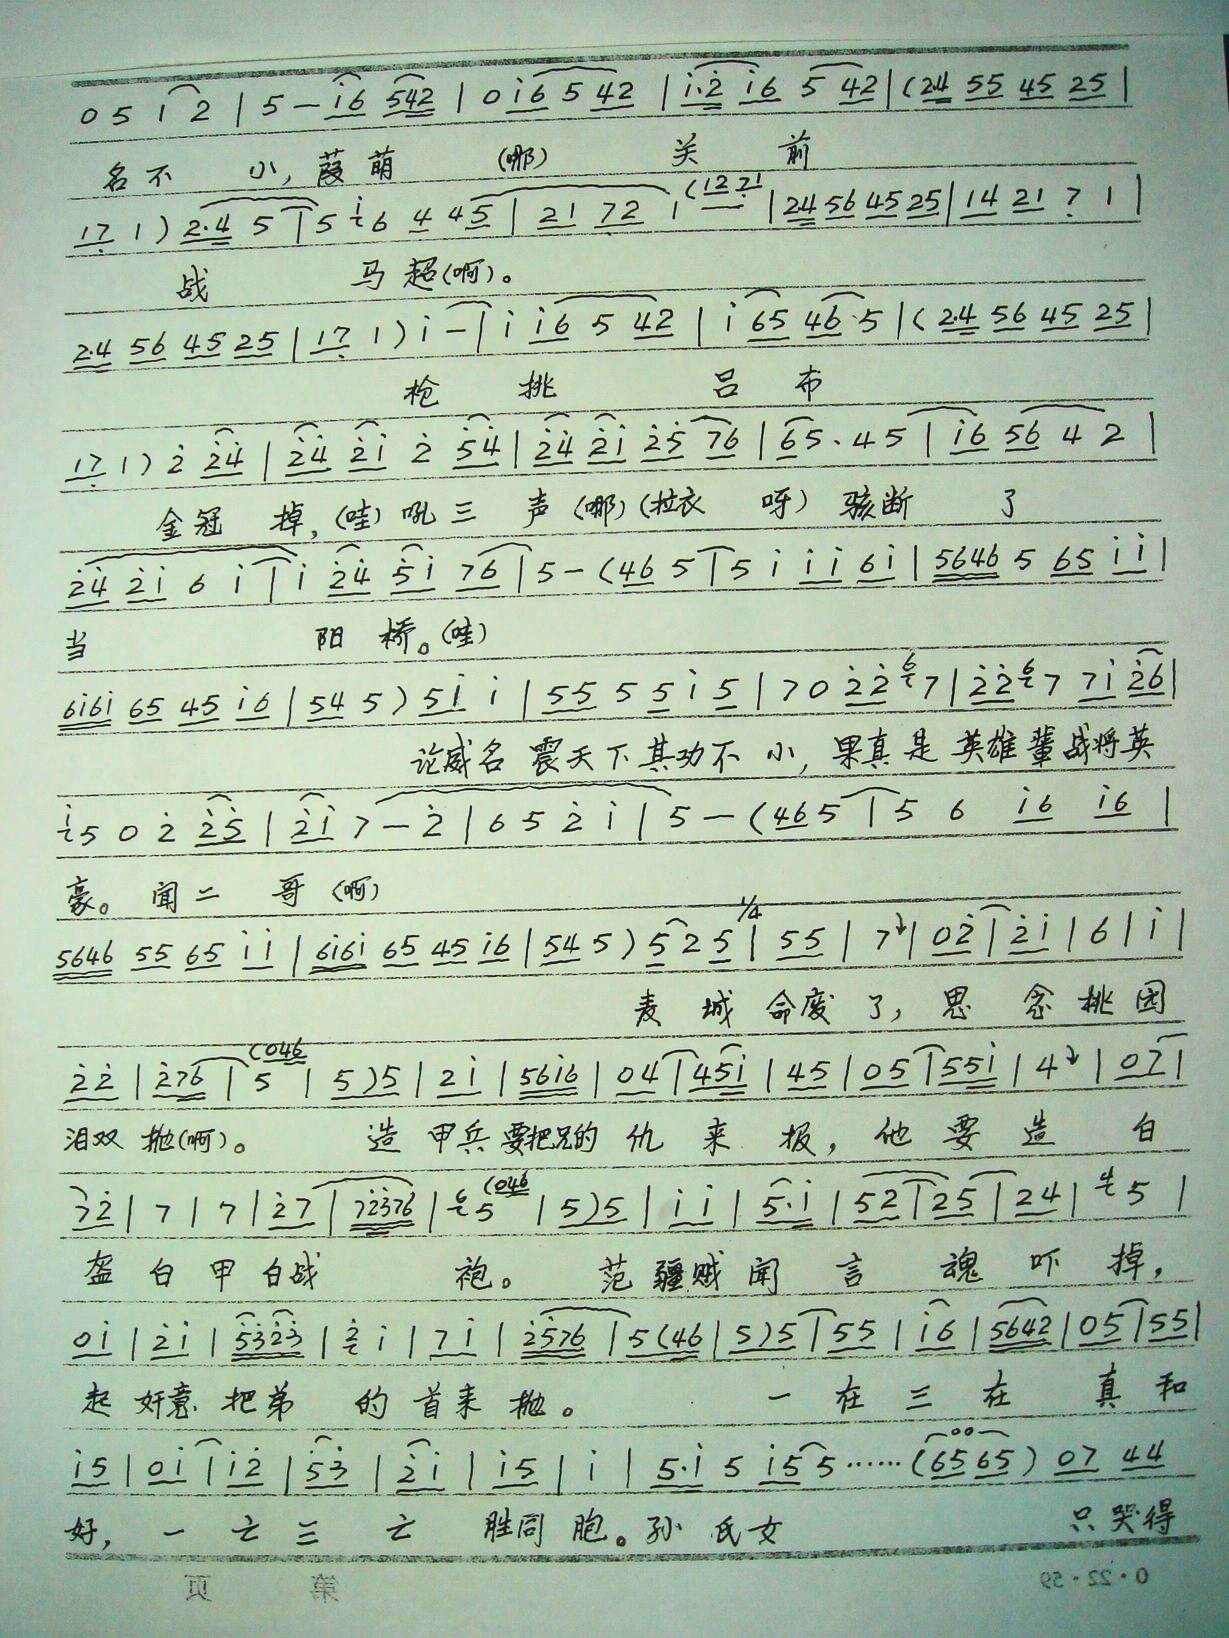 0 5 1 2 | 5 - i6 542 | 0 i6 5 42 | i·2 i6 5 42 | (24 55 45 25 |
名不 小, 葭萌 (哪) 关 前
17 1) 2·4 5 | 5 i 6 4 45 | 21 72 1 (12 71 | 24 56 45 25 | 14 21 7 1 |
战 马超(啊)。
2·4 56 45 25 | 17 1) i - | i i6 5 42 | i 65 46·5 | (2·4 56 45 25 |
枪 挑 吕 布
17 1) 2 24 | 24 21 2 54 | 24 21 25 76 | 65·45 | i6 56 4 2 |
金冠 掉, (哇) 吼三 声 (哪) (拉衣 呀) 骇断 了
24 2i 6 i | i 24 5i 76 | 5 - (46 5 | 5 i ii 6i | 5646 5 65 ii |
当 阳 桥。(哇)
6i6i 65 45 i6 | 54 5) 5i i | 55 5 5 i 5 | 7 0 22 6 7 | 22 6 7 7i 26 |
论威名 震天下其功不 小, 果真是 英雄辈战将英
i 5 0 2 25 | 2i 7 - 2 | 6 5 2 i | 5 - (46 5 | 5 6 i6 i6 |
豪。 闻二 哥 (啊)
5646 55 65 ii | 6i6i 65 45 i6 | 54 5) 5 2 5 1/4 | 55 | 7 | 02 | 2i | 6 | i |
麦 城 命废了, 思 念桃园
22 | 276 | 5 (046 | 5) 5 | 2i | 5616 | 04 | 45i | 45 | 05 | 55i | 4 | 07 |
泪双 抛(啊)。 造 甲兵要把兄的 仇 来 报, 他 要 造 白
72 | 7 | 7 | 27 | 72376 | 6 5 (046 | 5) 5 | ii | 5·i | 52 | 25 | 24 | 4 5 |
盔 白 甲 白战 袍。 范疆贼闻 言 魂 吓 掉,
0i | 2i | 5323 | 2 i | 7i | 2576 | 5(46 | 5)5 | 55 | i6 | 5642 | 05 | 55 |
起 奸意 把弟 的 首来 抛。 一 在 三 在 真 和
i5 | 0i | i2 | 53 | 2i | i5 | i | 5·i 5 i5 5 …… (65 65) 07 44
好, 一 亡 三 亡 胜同 胞。孙 氏 女 只哭得
第 页
0·22·59